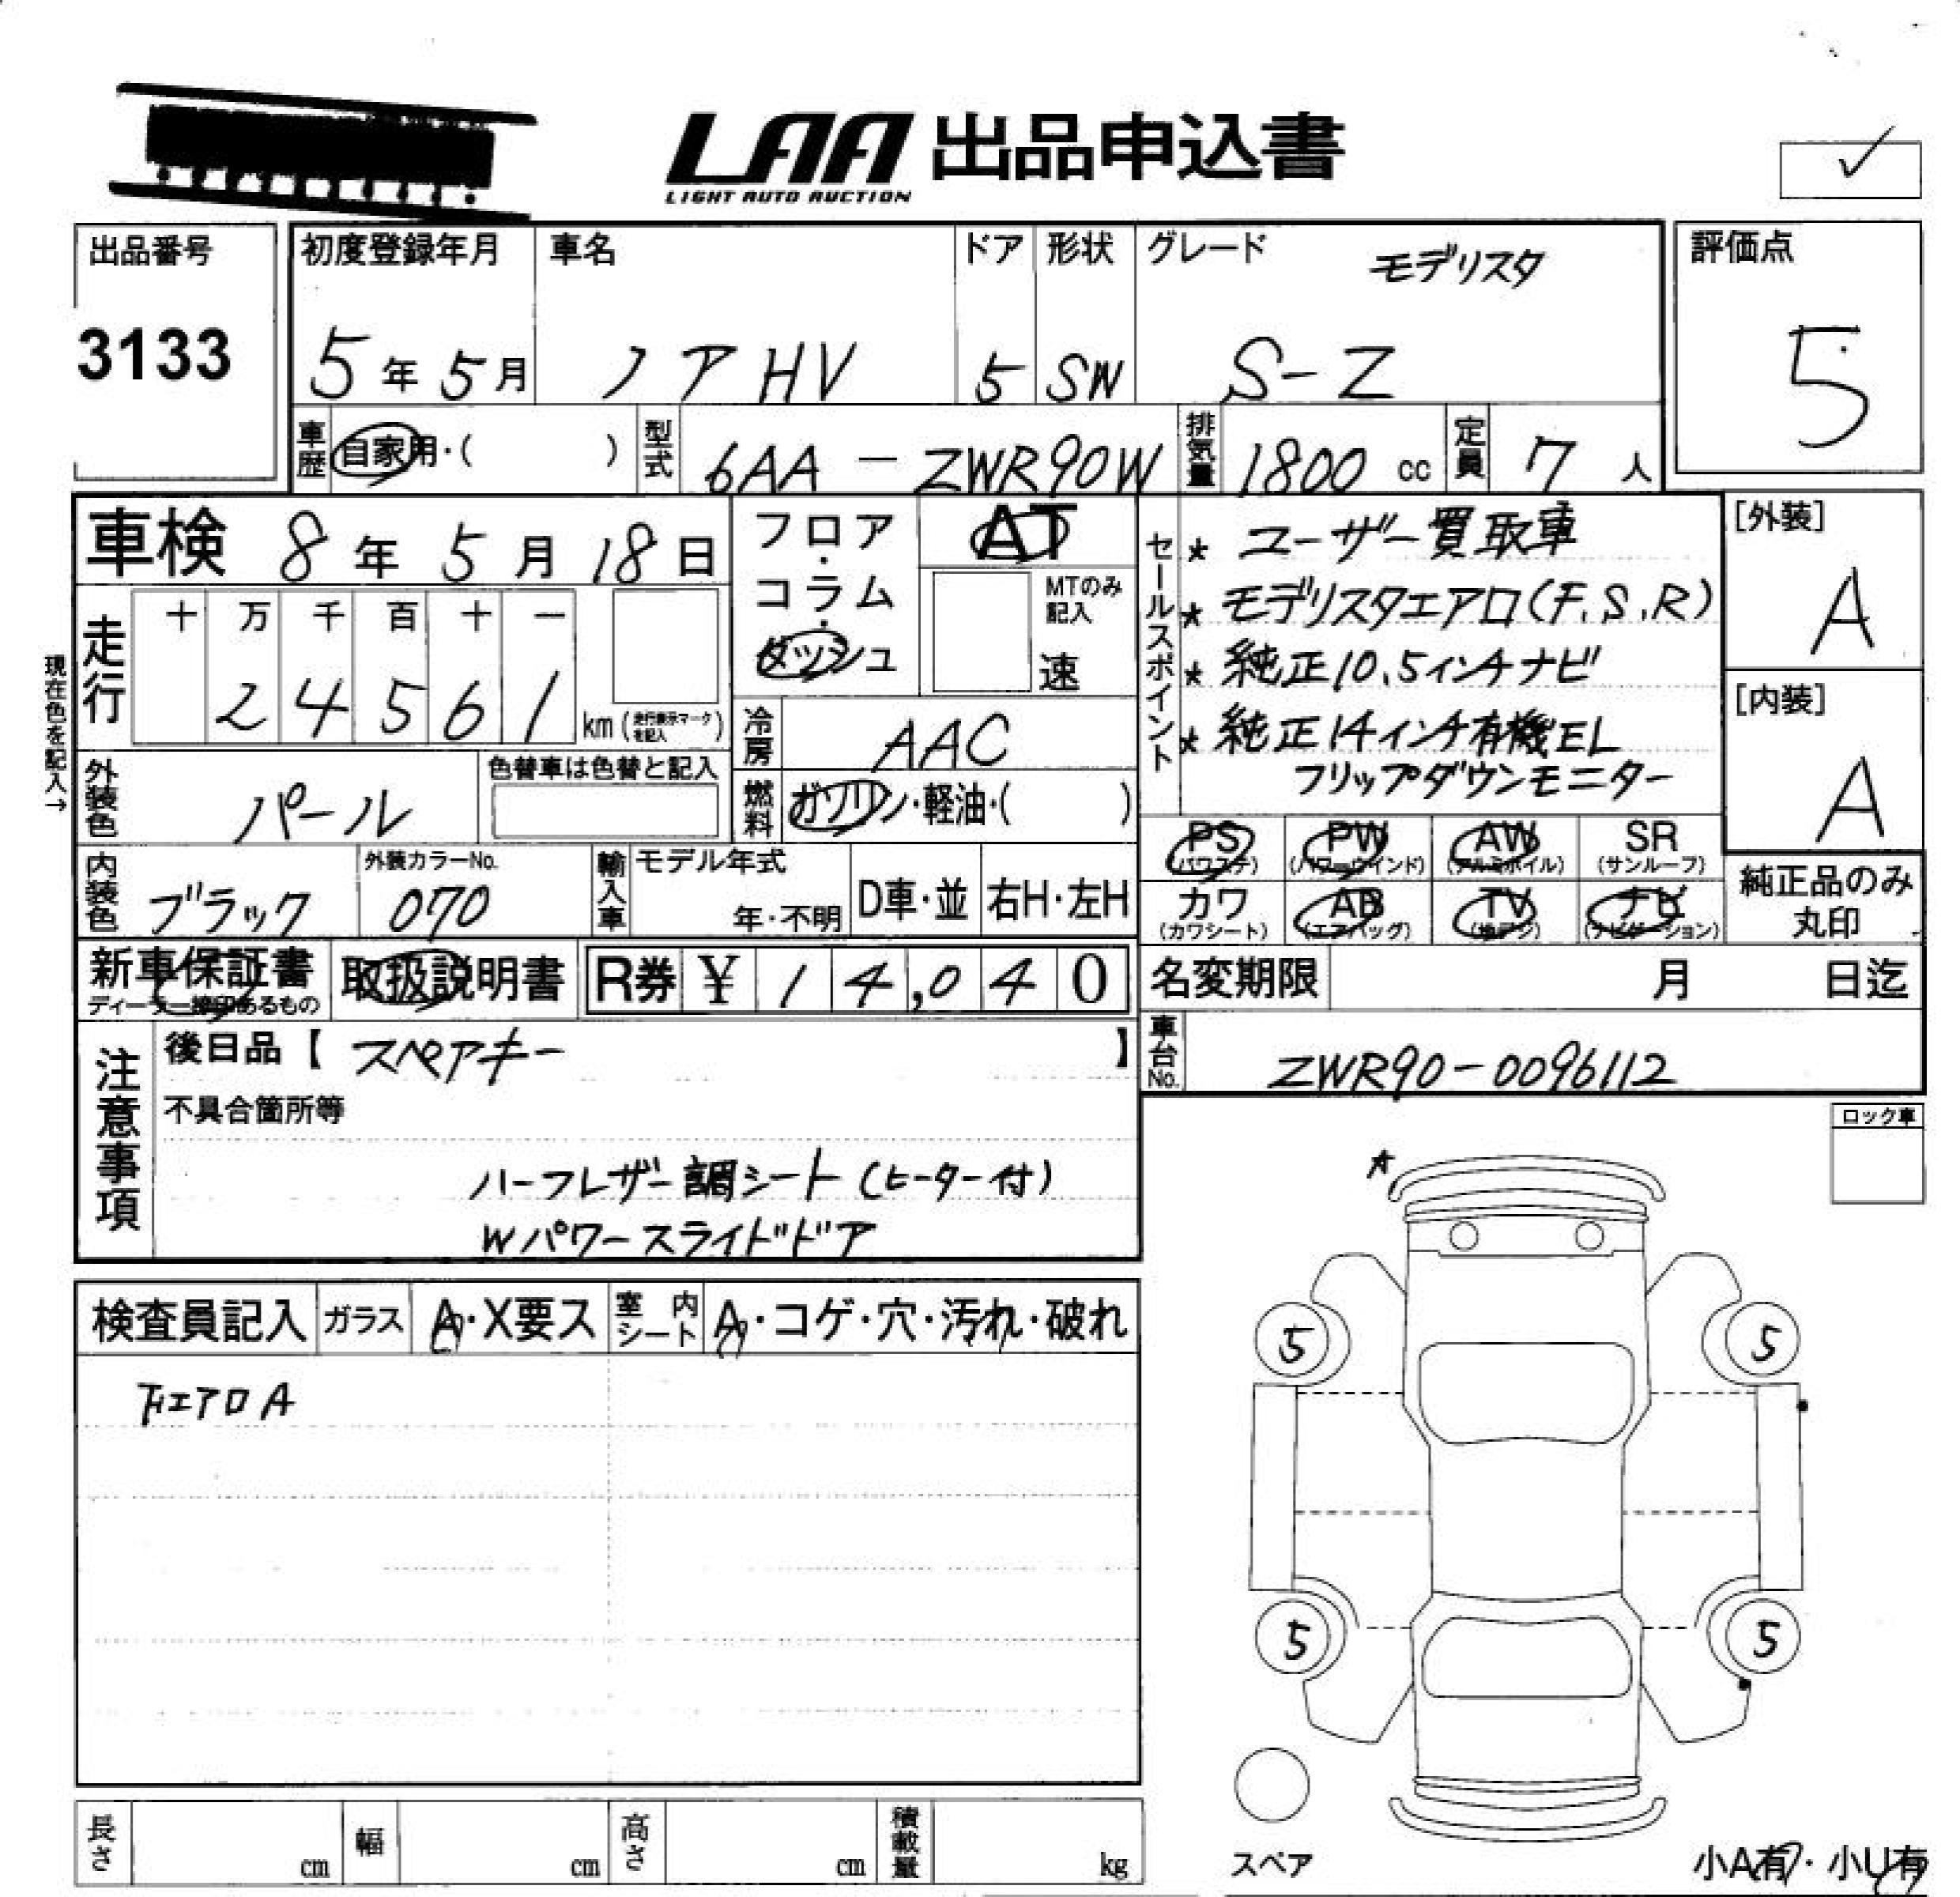 LAA 出品申込書
LIGHT AUTO AUCTION
出品番号
3133
初度登録年月
5年5月
車名
ノア HV
ドア
5
形状
SW
グレード
モデリスタ
S-Z
評価点
5
車歴
自家用・( )
型式
6AA - ZWR90W
排気量
1800 cc
定員
7 人
車検 8年 5月 18日
フロア・コラム・ダッシュ
AT
MTのみ記入
速
セールスポイント
★ ユーザー買取車
★ モデリスタエアロ(F.S.R)
★ 純正10.5インチナビ
★ 純正14インチ有機EL
フリップダウンモニター
[外装]
A
[内装]
A
現在色を記入→
走行
十 万 千 百 十 一
2 4 5 6 1 km (走行表示マークを記入)
冷房
AAC
外装色
パール
色替車は色替と記入
燃料
ガソリン・軽油・( )
PS
(パワステ)
PW
(パワーウインド)
AW
(アルミホイル)
SR
(サンルーフ)
内装色
ブラック
外装カラーNo.
070
輸入車
モデル年式
年・不明
D車・並
右H・左H
カワ
(カワシート)
AB
(エアバッグ)
TV
(地デジ)
ナビ
(ナビゲーション)
純正品のみ
丸印
新車保証書
ディーラー捺印あるもの
取扱説明書
R券 ¥ 1 4,0 4 0
名変期限 月 日迄
車台No.
ZWR90-0096112
注意事項
後日品【 スペアキー 】
不具合箇所等
ハーフレザー調シート(ヒーター付)
Wパワースライドドア
ロック車
A
検査員記入
ガラス
A・X要ス
室内シート
A・コゲ・穴・汚れ・破れ
下エアロA
5 5
5 5
スペア
長さ cm
幅 cm
高さ cm
積載量 kg
小A有・小U有